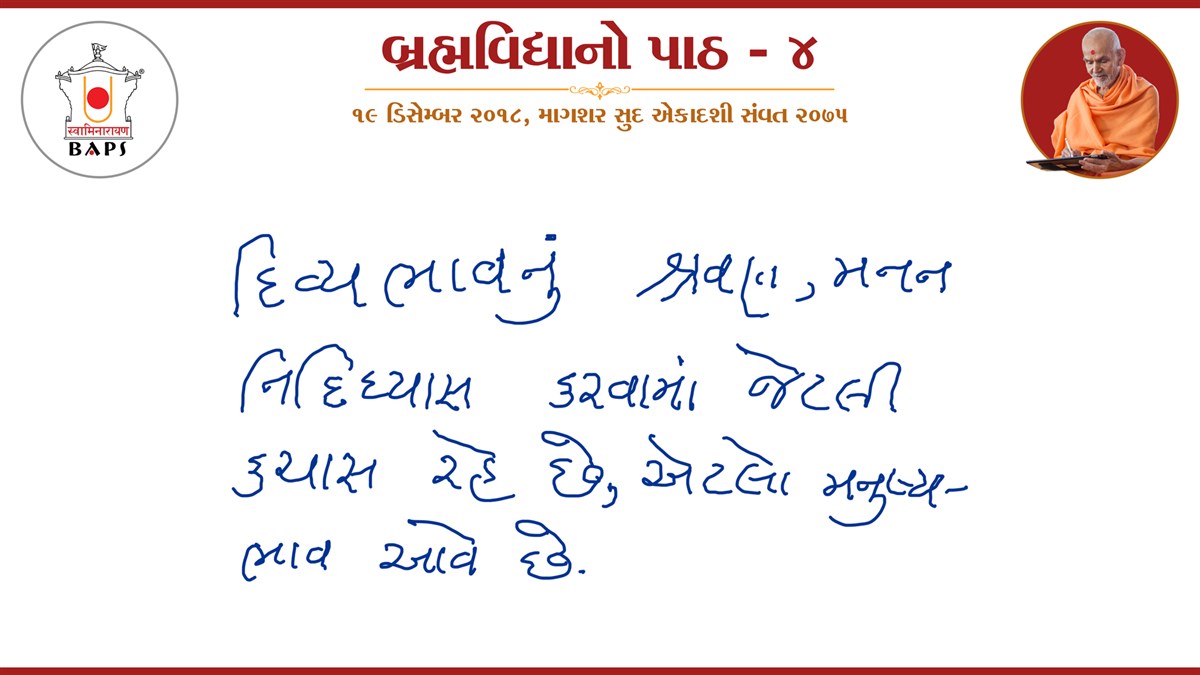 બ્રહ્મવિદ્યાનો પાઠ - ૪
૧૯ ડિસેમ્બર ૨૦૧૮, માગશર સુદ એકાદશી સંવત ૨૦૭૫
स्वामिनारायण
BAPS
દિવ્યભાવનું શ્રવણ, મનન
નિદિધ્યાસ કરવામાં જેટલી
કચાસ રહે છે, એટલો મનુષ્ય-
ભાવ આવે છે.